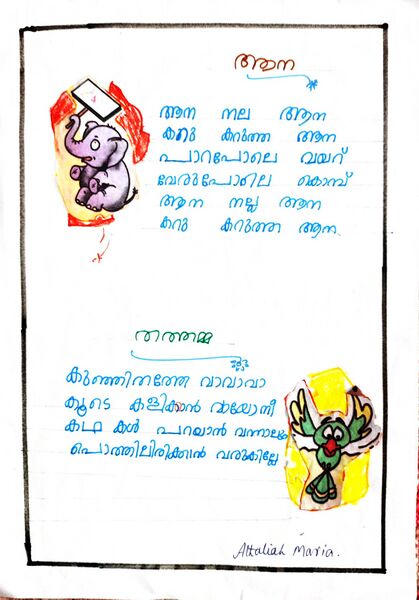 ആന
ആന നല ആന
കറു കറുത്ത ആന
പാറപോലെ വയറ്
വേരുപോലെ കൊമ്പ്
ആന നല്ല ആന
കറു കറുത്ത ആന.
തത്തമ്മ
കുഞ്ഞിതത്തേ വാവാവാ
കൂടെ കളിക്കാൻ വായോനീ
കഥ കൾ പറയാൻ വന്നാലും
പൊത്തിലിരിക്കാൻ വരുകില്ലേ
Attaliah Maria.